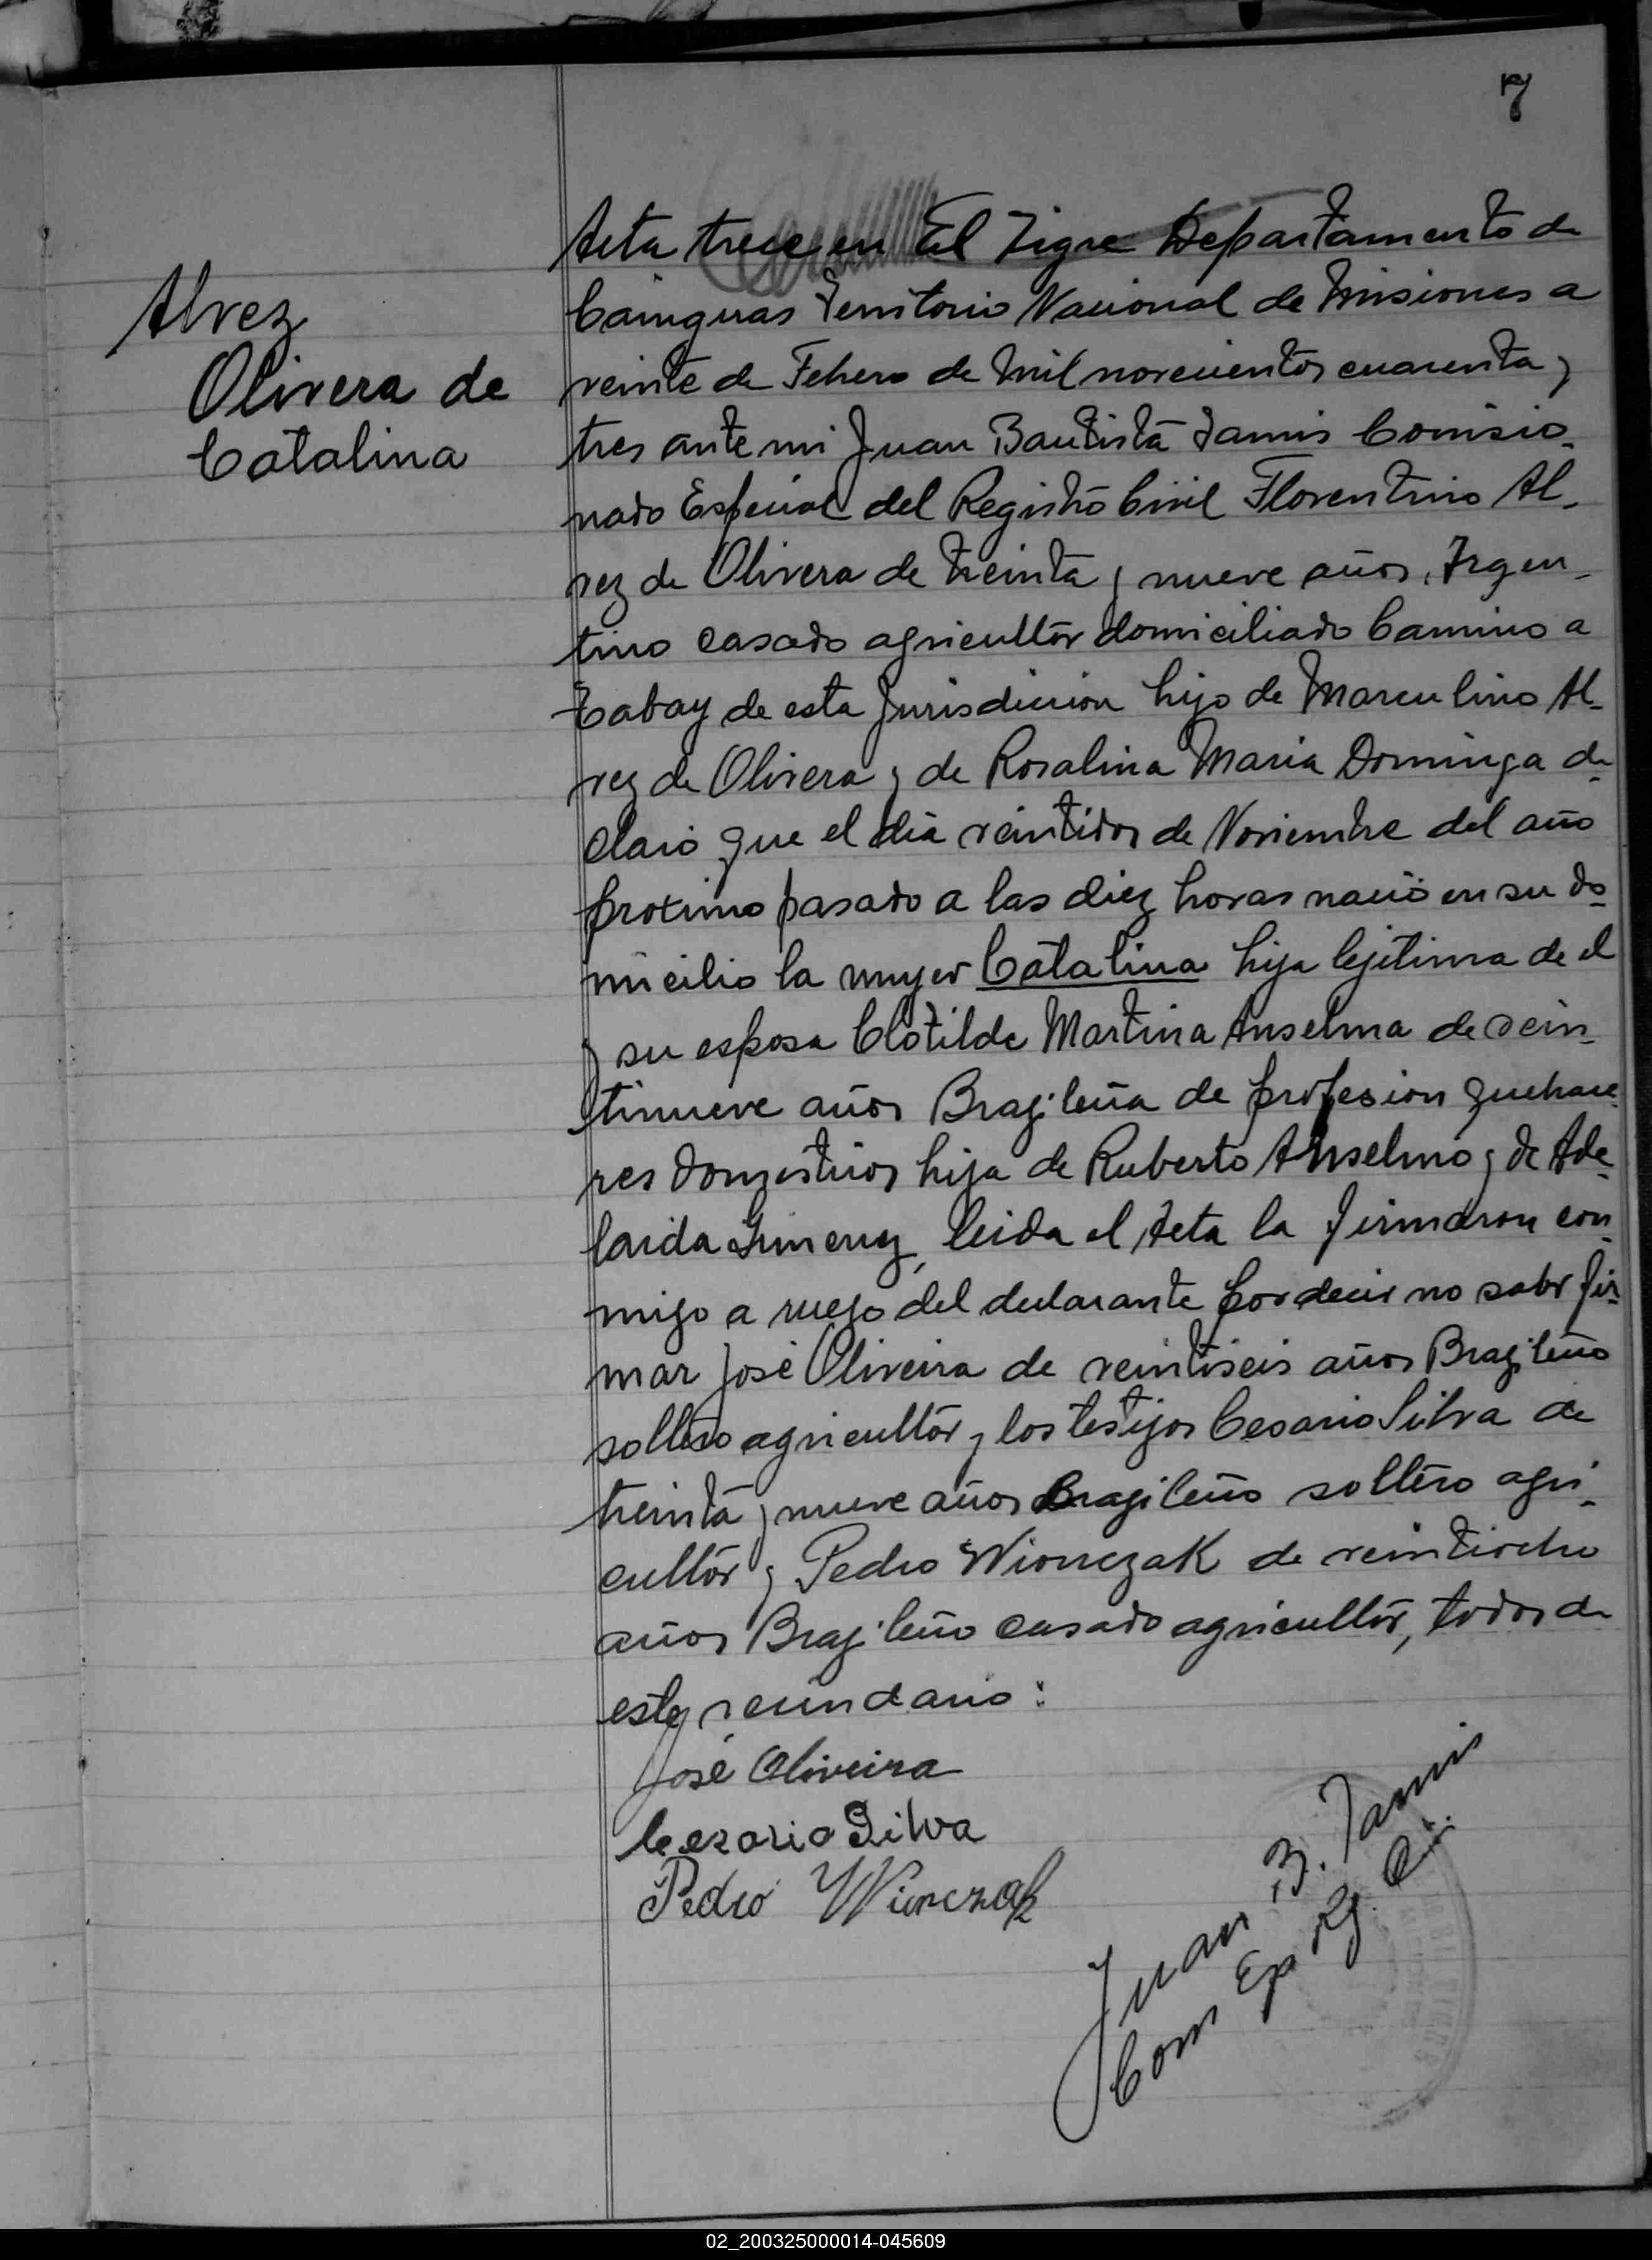 7
Acta trece en El Tigre Departamento de
Cainguas Territorio Nacional de Misiones a
veinte de Febrero de Mil novecientos cuarenta y
tres ante mi Juan Bautista Tamis Comisio-
nado Especial del Registro Civil Florentino Al-
vez de Olivera de treinta y nueve años, Argen-
tino casado agricultor domiciliado Camino a
Tabay de esta Jurisdicion hijo de Marculino Al-
vez de Olivera y de Rosalina Maria Dominga de-
claró que el dia veintidos de Noviembre del año
proximo pasado a las diez horas nació en su do-
micilio la mujer Catalina hija lejitima de el
y su esposa Clotilde Martina Anselma de vein-
tinueve años Brazileña de profesion quehace-
res domesticos hija de Ruberto Anselmo y de Ade-
laida Gimenez, leida el Acta la firmaron con-
migo a ruego del declarante por decir no saber fir-
mar José Oliveira de veintiseis años Brazileño
soltero agricultor y los testigos Cesario Silva de
treinta y nueve años Brazileño soltero agri-
cultor y Pedro Wionczak de veintiocho
años Brazileño casado agricultor, todos de
este vecindario:
Alvez
Olivera de
Catalina
José Oliveira
Cezario Silva
Pedro Wionczak
Juan B. Tamis
Com Esp Rg. Ci.
02_200325000014-045609